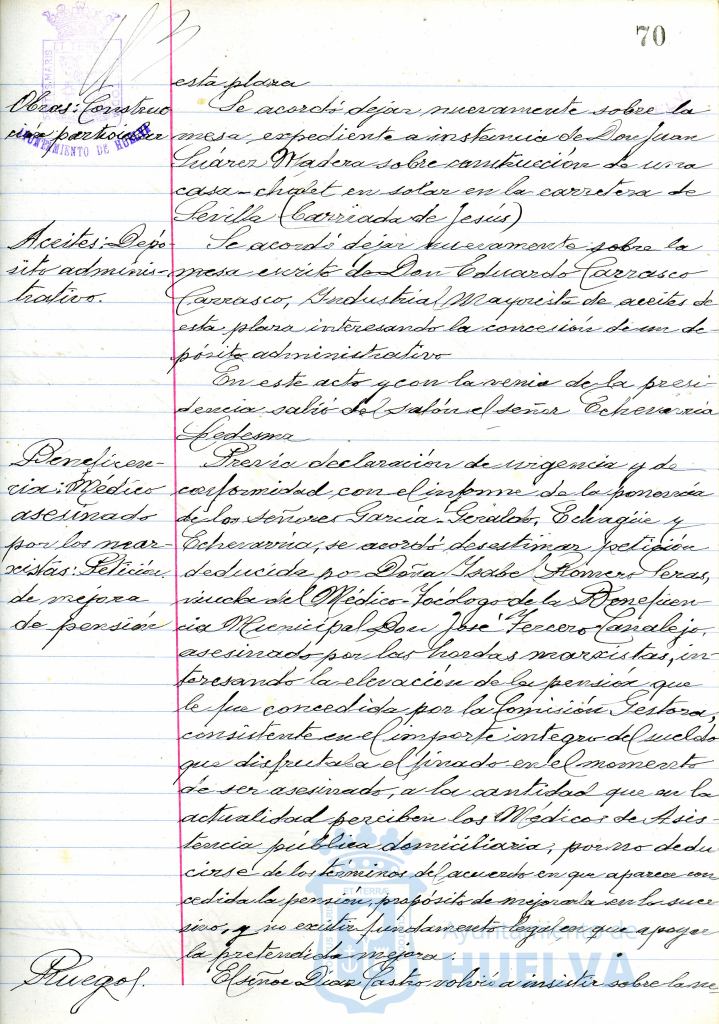 70
esta plaza
Obras: Construc
ción particular
AYUNTAMIENTO DE HUELVA
Se acordó dejar nuevamente sobre la
mesa, expediente a instancia de Don Juan
Suárez Madera sobre construcción de una
casa-chalet en solar en la carretera de
Sevilla (Barriada de Jesús)
Aceites: Depó-
sito adminis-
trativo.
Se acordó dejar nuevamente sobre la
mesa escrito de Don Eduardo Carrasco
Carrasco, Industrial Mayorista de aceites de
esta plaza interesando la concesión de un de-
pósito administrativo
En este acto y con la venia de la presi-
dencia salió del salón el señor Echevarria
Ledesma
Beneficen-
cia: Médico
asesinado
por los mar-
xistas: Petición
de mejora
de pensión
Previa declaración de urgencia y de
conformidad con el informe de la ponencia
de los señores García-Geraldo, Echagüe y
Echevarría, se acordó desestimar, petición
deducida por Doña Isabel Romero Seras,
viuda del Médico Tocólogo de la Beneficen
cia Municipal Don José Tercero Canalejo,
asesinado por las hordas marxistas, in-
teresando la elevación de la pension que
le fue concedida por la Comisión Gestora,
consistente en el importe integro del sueldo
que disfrutaba el finado en el momento
de ser asesinado, a la cantidad que en la
actualidad perciben los Médicos de Asis-
tencia pública domiciliaria, por no dedu
cirse de los terminos del acuerdo en que aparece con
cedida la pensión, propósito de mejorarla en lo suce
sivo, y no existir fundamento legal en que apoyar
la pretendida mejora.
Ruegos.
El señor Díaz Castro volvió a insistir sobre la ne
Ayuntamiento de
HUELVA